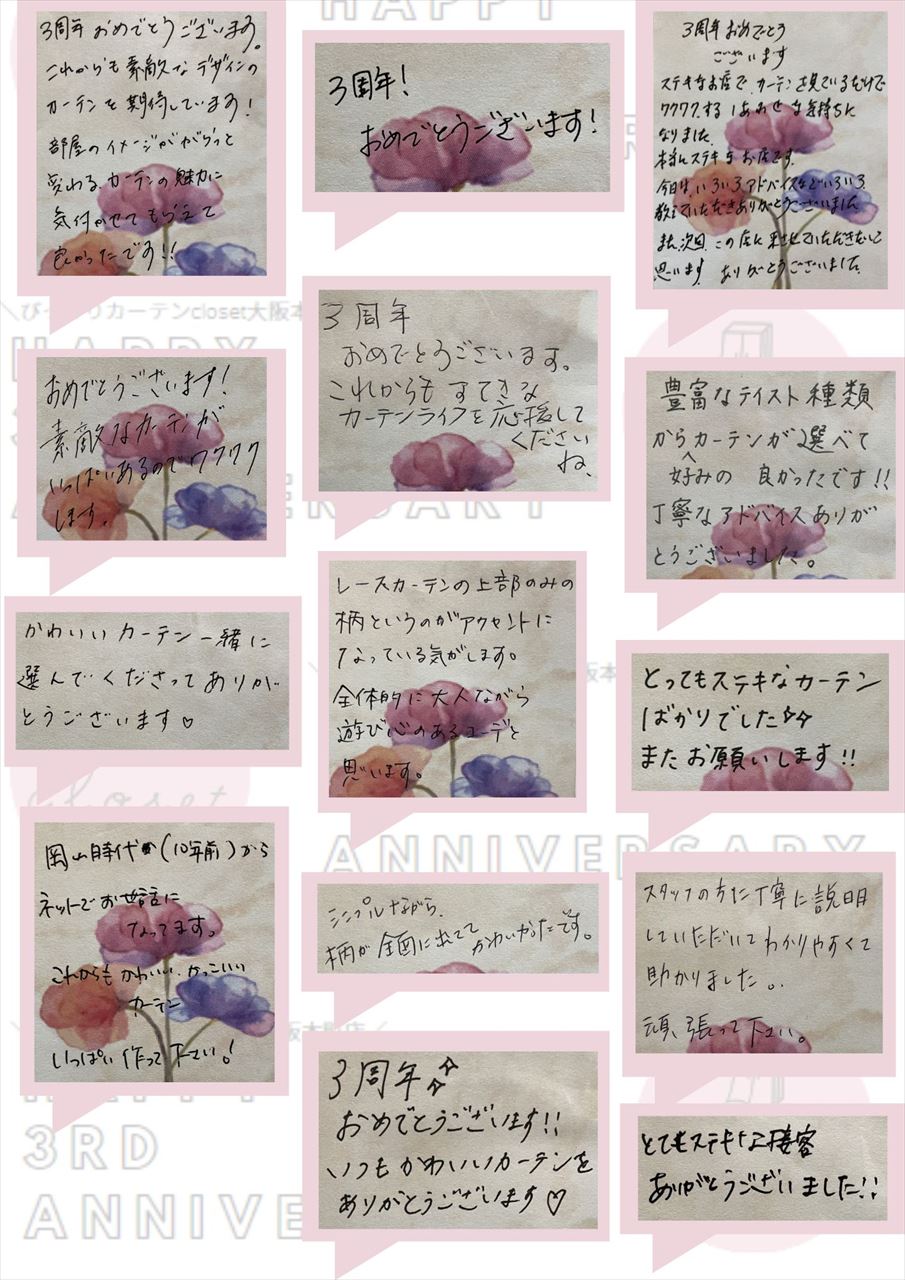 3周年おめでとうございます。
これからも素敵なデザインの
カーテンを期待しています!
部屋のイメージががらっと
変わるカーテンの魅力に
気付かせてもらえて
良かったです!!
3周年!
おめでとうございます!
3周年おめでとう
ございます
ステキなお店で、カーテンを見ているだけで
ワクワクするしあわせな気持ちに
なりました。
本当にステキなお店です。
今日は、いろいろアドバイスなどいろいろ
教えていただきありがとうございました。
また、次回、この店に来させていただきたいと
思います。ありがとうございました。
おめでとうございます!
素敵なカーテンが
いっぱいあるのでワクワク
します。
3周年
おめでとうございます。
これからもすてきな
カーテンライフを応援して
ください
ね、
豊富なテイスト種類
からカーテンが選べて
好みの 良かったです!!
丁寧なアドバイスありが
とうございました。
かわいいカーテン一緒に
選んでくださってありが
とうございます♡
レースカーテンの上部のみの
柄というのがアクセントに
なっている気がします。
全体的に大人ながら
遊び心のあるコーデと
思います。
とってもステキなカーテン
ばかりでした☆☆
またお願いします!!
岡山時代(10年前)から
ネットでお世話に
なってます。
これからもかわいい、かっこいい
カーテン
いっぱい作って下さい!
シンプルながら、
柄が全面に出てて かわいかったです。
スタッフの方た丁寧に説明
していただいてわかりやすくて
助かりました。
頑張って下さい。
3周年☆☆
おめでとうございます!!
いつもかわいいカーテンを
ありがとうございます♡
とてもステキな接客
ありがとうございました!!
HAPPY
\びっくりカーテンcloset大阪本
HAPPY
ERSARY
closet
ANNIVERSARY
阪本町店/
3RD
ANNIVE